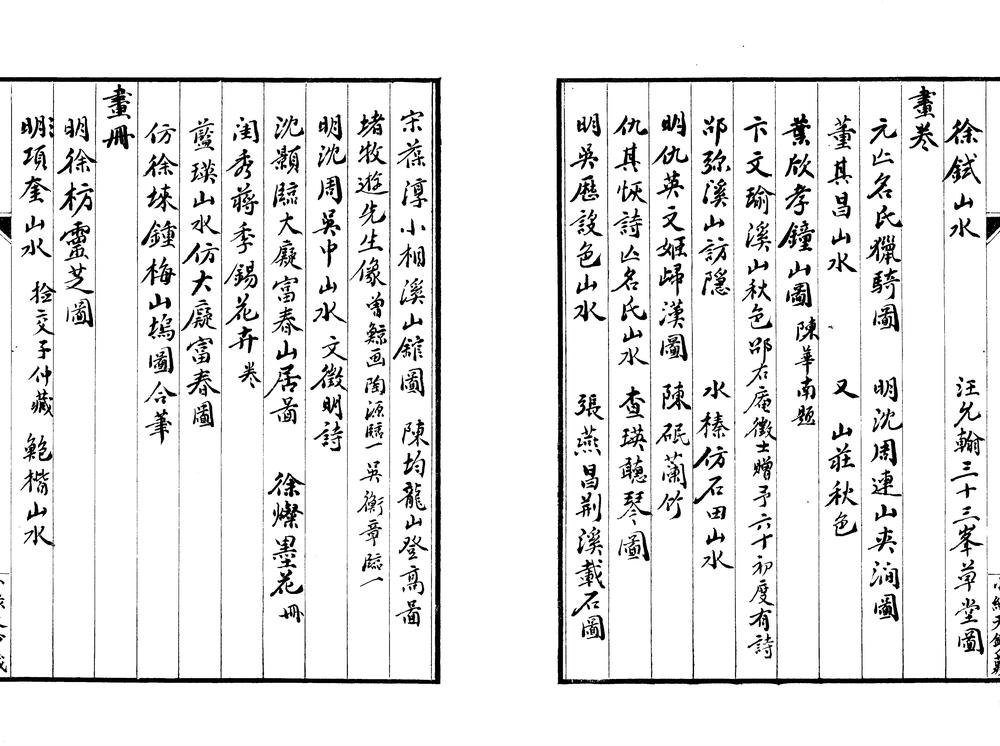 徐鉽山水 汪允翰三十三峯草堂圖
畫卷
元亾名氏獵騎圖 明沈周連山夾澗圖
董其昌山水 又 山莊秋色
葉欣孝鐘山圖 陳華南題
卞文瑜溪山秋色 邵右庵徵士贈予六十初度有詩
邵弥溪山訪隱 水榛仿石田山水
明仇英文姬歸漢圖 陳砥蘭竹
仇其恢詩亾名氏山水 查瑛聽琴圖
明吳歷設色山水 張燕昌荆溪載石圖
宋葆淳小相溪山館圖 陳均龍山登高圖
堵牧遊先生像 曾鯨画 陶源臨一 吳衡章臨一
明沈周吳中山水 文徵明詩
沈顥臨大癡富春山居圖 徐燦墨花冊
閨秀蔣季錫花卉卷
藍瑛山水仿大癡富春圖
仿徐埭鍾梅山塢圖合筆
畫冊
明徐枋靈芝圖
明項奎山水 拴交子仲藏 鮑楷山水